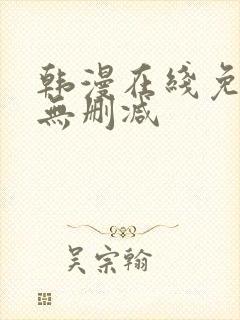 韩漫在线免
無删减
吴宗翰